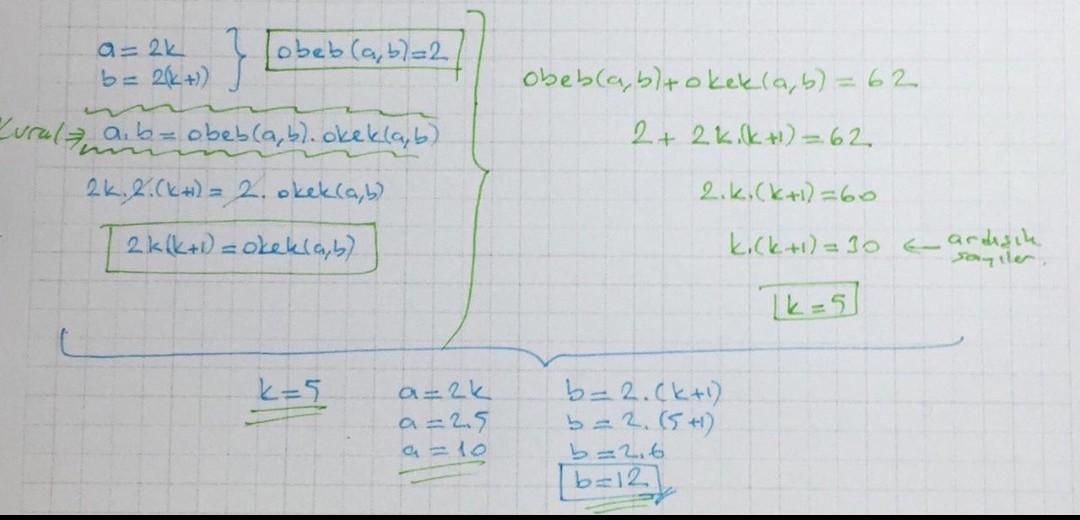 a = 2k
b = 2(k+1)
obeb(a,b)=2
Kural ⇒ a.b = obeb(a,b).okek(a,b)
2k.2.(k+1) = 2. okek(a,b)
2k(k+1) = okek(a,b)
obeb(a,b)+okek(a,b) = 62
2 + 2k.(k+1) = 62
2.k.(k+1) = 60
k.(k+1) = 30 ← ardışık
sayılar.
k = 5
k = 5
a = 2k
a = 2.5
a = 10
b = 2.(k+1)
b = 2.(5+1)
b = 2.6
b = 12